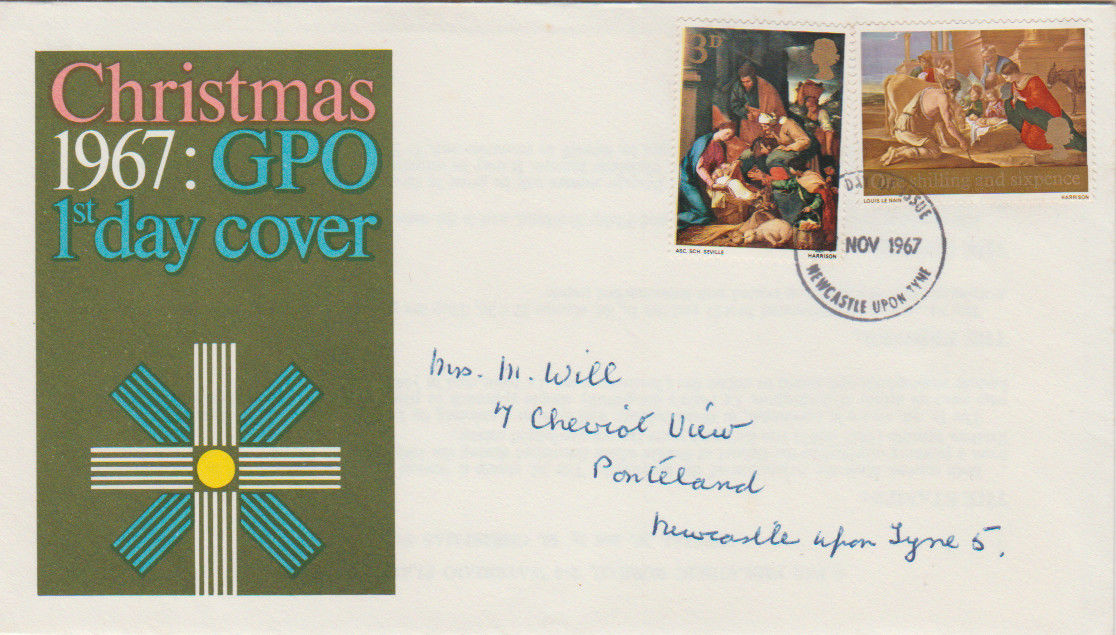 Christmas
1967: GPO
1st day cover
3D
ASC. SCH. SEVILLE
HARRISON
One shilling and sixpence
LOUIS LE NAIN
HARRISON
DAY OF ISSUE
NOV 1967
NEWCASTLE UPON TYNE
Mrs. M. Will
7 Cheviot View
Ponteland
Newcastle upon Tyne 5.